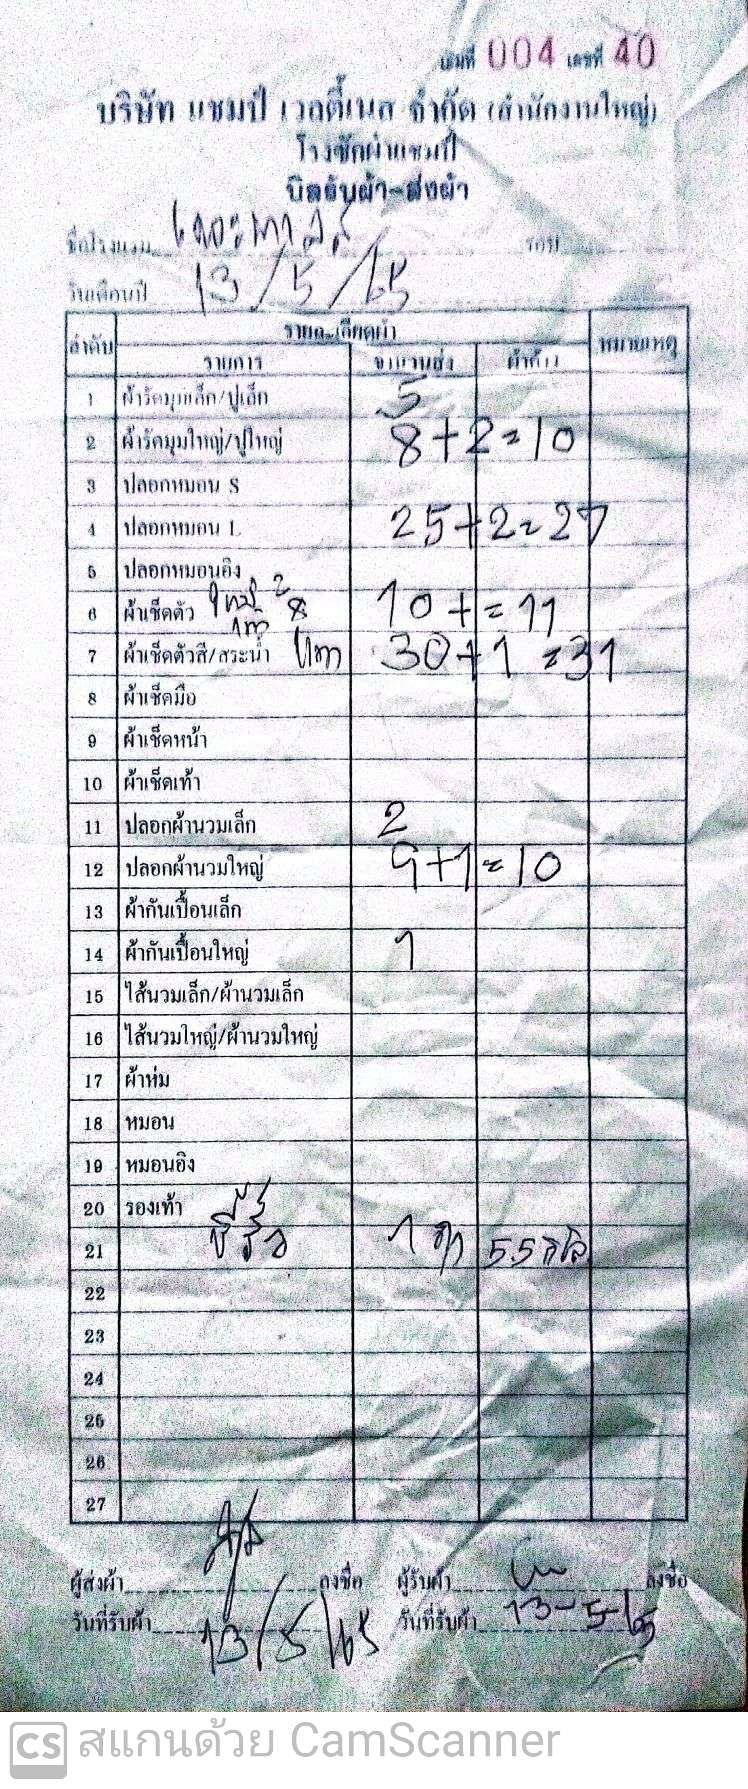 เล่มที่ 004 เลขที่ 40
บริษัท แชมป์ เวลตี้เนส จำกัด (สำนักงานใหญ่)
โรงซักผ้าแชมป์
บิลรับผ้า-ส่งผ้า
ชื่อโรงแรม
วันเดือนปี 13/5/65
ลำดับ รายละเอียดผ้า หมายเหตุ
รายการ จำนวนส่ง ผ้าค้าง
1 ผ้ารัดมุมเล็ก/ปูเล็ก 5
2 ผ้ารัดมุมใหญ่/ปูใหญ่ 8+2=10
3 ปลอกหมอน S
4 ปลอกหมอน L 25+2=27
5 ปลอกหมอนอิง
6 ผ้าเช็ดตัว 10+=11
7 ผ้าเช็ดตัวสี/สระน้ำ เทา 30+1=31
8 ผ้าเช็ดมือ
9 ผ้าเช็ดหน้า
10 ผ้าเช็ดเท้า
11 ปลอกผ้านวมเล็ก 2
12 ปลอกผ้านวมใหญ่ 9+1=10
13 ผ้ากันเปื้อนเล็ก
14 ผ้ากันเปื้อนใหญ่ 1
15 ไส้นวมเล็ก/ผ้านวมเล็ก
16 ไส้นวมใหญ่/ผ้านวมใหญ่
17 ผ้าห่ม
18 หมอน
19 หมอนอิง
20 รองเท้า
21 1 5.5 กิโล
22
23
24
25
26
27
ผู้ส่งผ้า ลงชื่อ ผู้รับผ้า ลงชื่อ
วันที่รับผ้า 13/5/65 วันที่รับผ้า 13-5-65
CS สแกนด้วย CamScanner